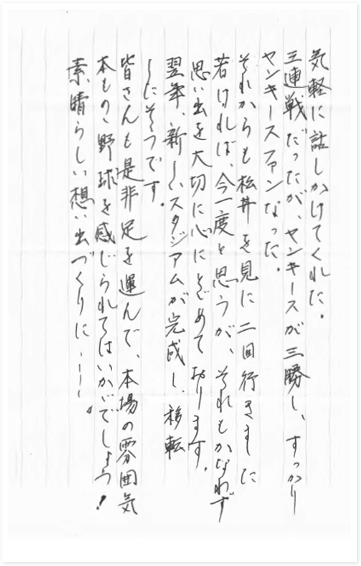 気軽に話しかけてくれた。
三連戦だったが、ヤンキースが三勝し、すっかり
ヤンキースファンなった。
それからも松井を見に二回行きました
若ければ、今一度と思うが、それもかなわず
思い出を大切に心にとどめております。
翌年、新しいスタジアムが完成し、移転
したそうです。
皆さんも是非足を運んで、本場の雰囲気
本もの、野球を感じられてはいかがでしょう!
素晴らしい想い出づくりに……。